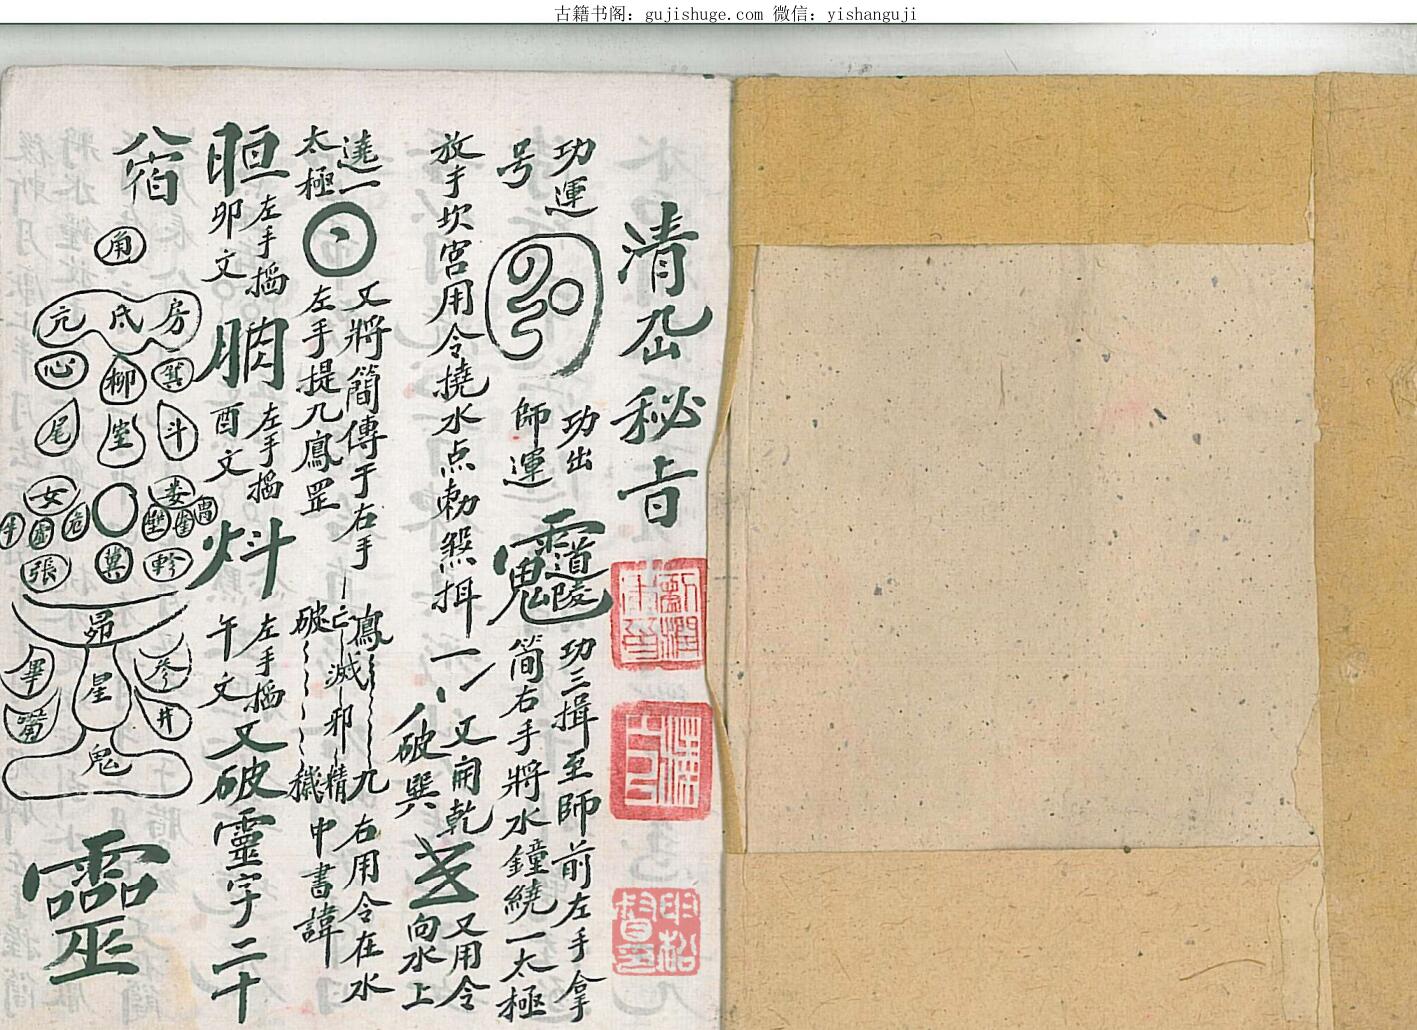 古籍书阁：gujishuge.com 微信：yishanguji
清 秘旨
功運
号
功出
師運
功三揖至師前左手拿
簡右手將水鐘繞一太極
放手坎宮用令撓水点勅煞揖
又開乾
破巽
又用令
向水上
遶一
太極
又將簡傳于右手
左手提九鳳罡
鳳
九
破
穢
亡滅邪精
右用令在水
中書諱
左手搯
卯文
左手搯
酉文
左手搯
午文
又破靈字二十
八宿
角
亢氐房
心柳箕
尾室斗
女婁
牛虛危壁奎胃
張翼軫
昴
畢星參
觜井
鬼
靈